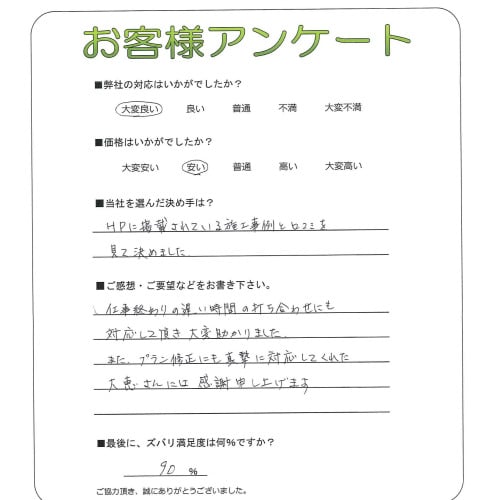 お客様アンケート
■弊社の対応はいかがでしたか？
大変良い 良い 普通 不満 大変不満
■価格はいかがでしたか？
大変安い 安い 普通 高い 大変高い
■当社を選んだ決め手は？
HPに掲載されている施工事例と口コミを
見て決めました
■ご感想・ご要望などをお書き下さい。
仕事終わりの遅い時間の打ち合わせにも
対応して頂き大変助かりました.
また、プラン修正にも真摯に対応してくれた
大恵さんには感謝申し上げます
■最後に、ズバリ満足度は何%ですか？
90 %
ご協力頂き、誠にありがとうございました。